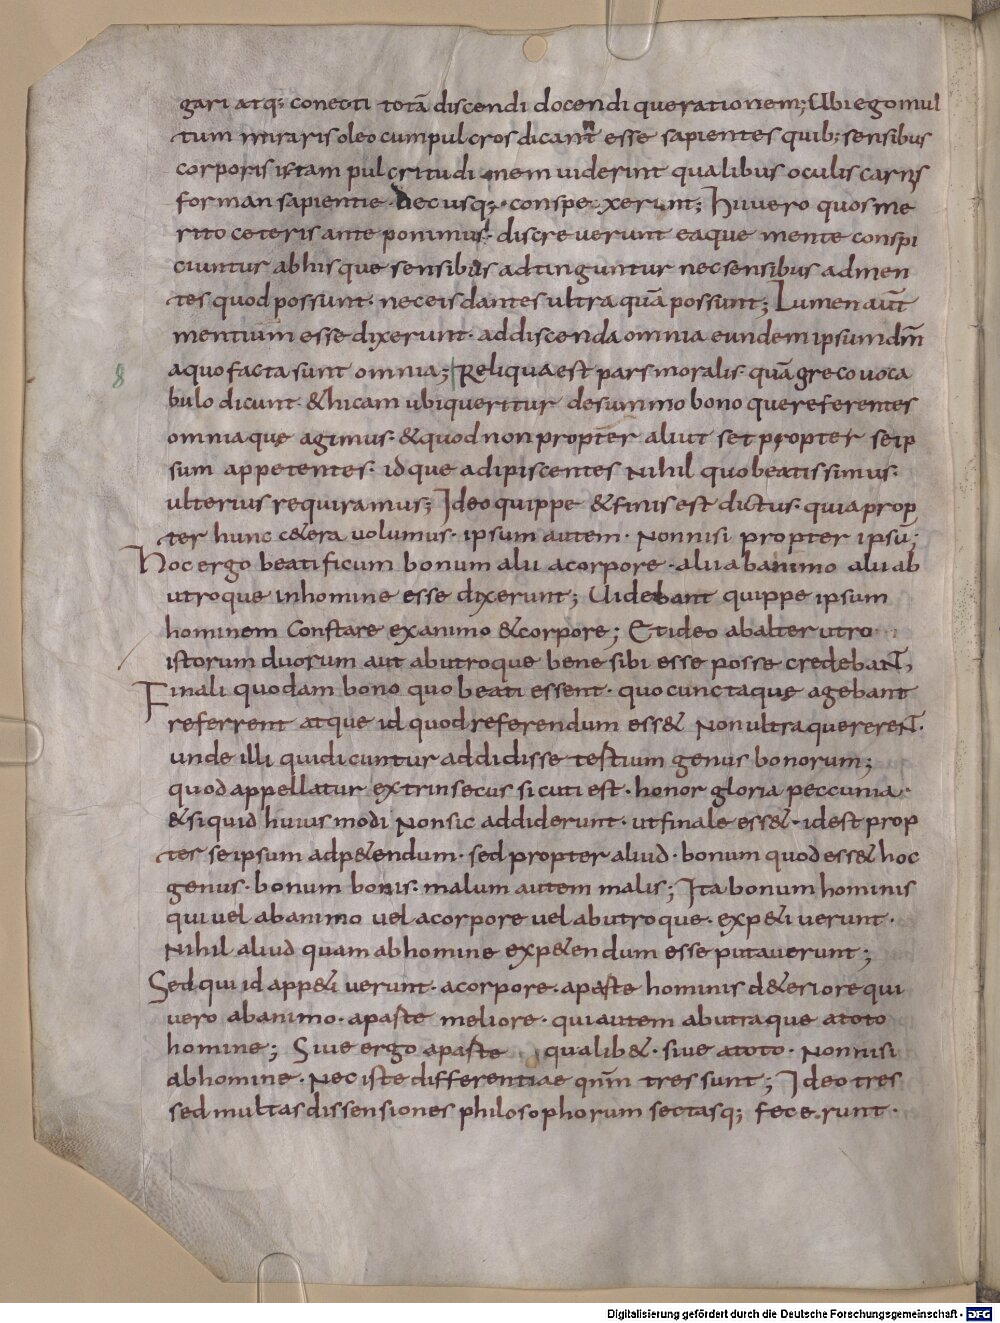 gari atq; conecti totā discendi docendi querationem; Ubi ego mul
tum miraris oleo cum pulcros dicant esse sapientes quib; sensibus
corporis istam pulcritudinem uiderint qualibus oculis carnis
forman sapientie decusq; conspexerint; Hii uero quos me
rito ceteris ante ponimus. discreuerunt ea que mente conspi
ciuntur ab his que sensibus adtinguntur nec sensibus admen
tes quod possunt. nec eis dantes ultra quā possunt; Lumen aut̄
mentium esse dixerunt. addiscenda omnia eundem ipsum dm̄
a quo facta sunt omnia; Reliqua est pars moralis quā greco uoca
8
bulo dicunt. & hicam ubi queritur de summo bono quo referentes
omnia que agimus. & quod non propter aliut set propter seip
sum appetentes. id que adipiscentes Nihil quo beatissimus.
ulterius requiramus; Ideo quippe & finis est dictus. quia prop
ter hunc cetera uolumus. ipsum autem. Non nisi propter ipsū;
Hoc ergo beatificum bonum alii a corpore. alii ab animo alii ab
utroque in homine esse dixerunt; Uidebant quippe ipsum
hominem Constare ex animo & corpore; Et ideo ab alterutro
istorum duorum aut ab utroque bene sibi esse posse credebant,
Finali quodam bono quo beati essent. quo cuncta que agebant
referrent atque id quod referendum ess& Non ultra quererent.
unde illi qui dicuntur addidisse testium genus bonorum;
quod appellatur extrinsecus sicuti est. honor gloria peccunia.
& siquid huius modi Non sic addiderunt. ut finale ess&. id est prop
ter se ipsum adp&endum. sed propter aliud. bonum quod ess& hoc
genus. bonum bonis. malum autem malis; Ita bonum hominis
qui uel ab animo uel a corpore uel ab utroque. exp&iuerunt.
Nihil aliud quam ab homine exp&endum esse putauerunt;
Sed qui id app&iuerunt. a corpore. a paste hominis d&eriore qui
uero ab animo. a paste meliore. qui autem ab utraque a toto
homine; Siue ergo a paste qualib&. siue a toto. Non nisi
ab homine. Nec iste differentiae qnm̄ tres sunt; Ideo tres
sed multas dissensiones philosophorum sectasq; fecerunt.
Digitalisierung gefördert durch die Deutsche Forschungsgemeinschaft - DFG